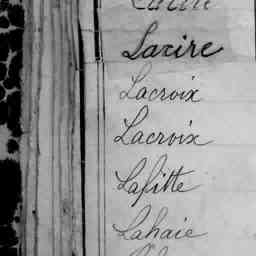 Lazire
Lacroix
Lacroix
Lafitte
Lahaie